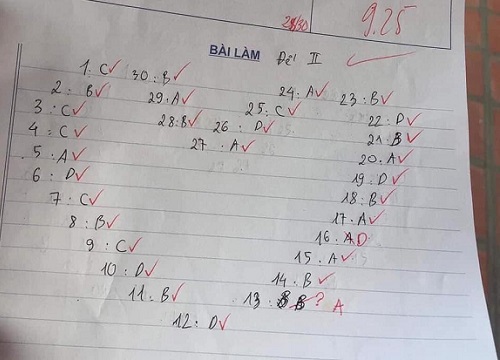 9.25
BÀI LÀM Đề II
1: C
2: B
3: C
4: C
5: A
6: D
7: C
8: B
9: C
10: D
11: B
12: D
13: B ? A
14: B
15: A
16: A D
17: A
18: B
19: D
20: A
21: B
22: D
23: B
24: A
25: C
26: D
27: A
28: B
29: A
30: B